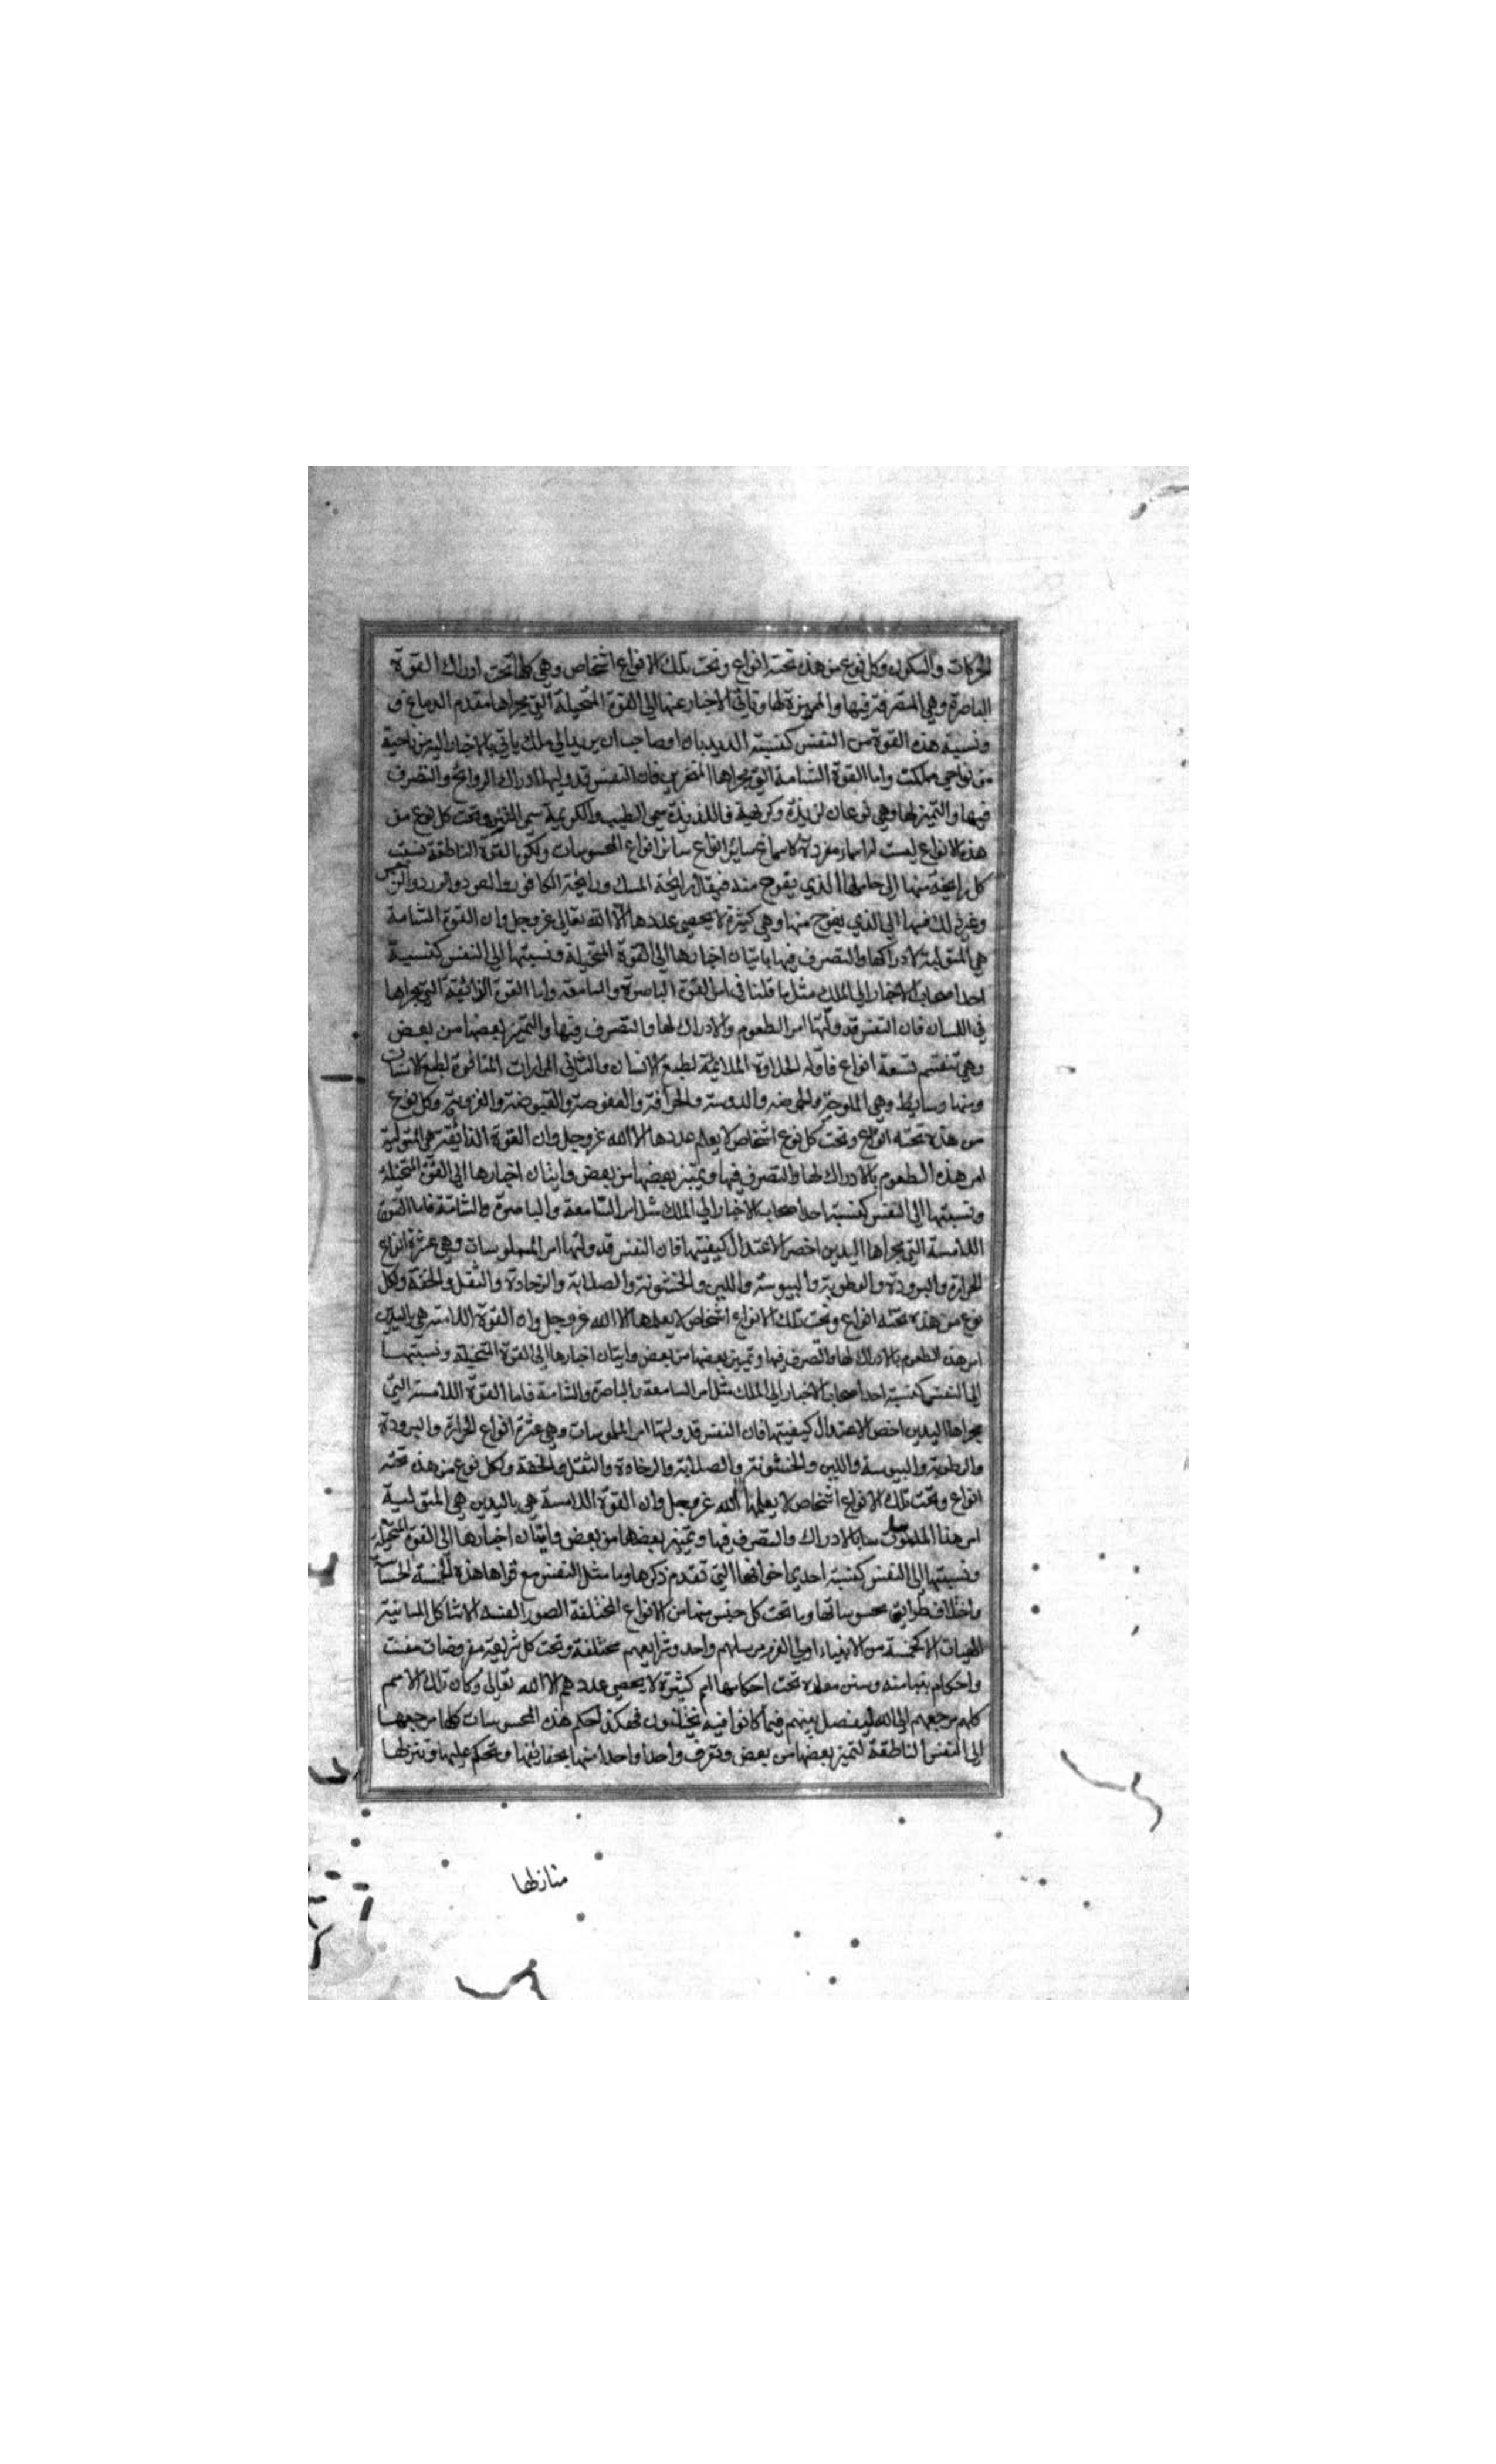 الحركات والسكون وكل نوع من هذه تحته انواع وتحت تلك الانواع اشخاص وهي كلها تحت ادراك القوة
الباصرة وهي المتصرفة فيها والمميزة لها وتاتي الاخبار عنها الي القوة المتخيلة التي مجراها مقدم الدماغ و
ونسبة هذه القوة من النفس كنسبة الديدبان او صاحب البريد الي ملك ياتي بالاخبار اليه من ناحية
من نواحي مملكته واما القوة الشامة التي مجراها المنخرين فان النفس قد وليها ادراك الروايح والتصرف
فيها والتميز لها وهي نوعان لذيذة وكريهية فاللذيذة سمى الطيب والكريهة سمى النتن وتحت كل نوع من
هذه الانواع ليست لها اسماء مفردة سائر انواع المحسوسات ولكن القوة الناطقة نسبت
كل رايحة منها الى حاملها الذي يفوح منه فيقال رايحة المسك ورايحة الكافور والعود والورد والنرجس
وغير ذلك فنسبها الي الذي يفوح منها وهي كثيرة لا يحصى عددها الا الله تعالى عز وجل وان القوة الشامة
هي المتولية لادراكها والتصرف فيها باتيان اخبارها الي القوة المتخيلة ونسبتها الي النفس كنسبة
احد اصحاب الاخبار الي الملك مثل ما قلنا في امر القوة الباصرة والسامعة واما القوة الذائقة التي مجراها
في اللسان فان النفس قد ولتها امر الطعوم والادراك لها والتصرف فيها والتميز بعضها من بعض
وهي تنقسم تسعة انواع فاوله الحلاوة الملائمة لطبع الانسان والثاني المرارات المتنافرة لطبع الانسان
وبينها وسايط وهي الملوحة والحموضة والدسومة والحرافة والعفوصة والقبوضة والعذوبة وكل نوع
من هذه تحته انواع وتحت كل نوع اشخاص لا يعلم عددها الا الله عز وجل وان القوة الذائقة هي المتولية
امر هذه الطعوم بالادراك لها والتصرف فيها وتميز بعضها من بعض وايتان اخبارها الى القوة المتخيلة
ونسبتها الى النفس كنسبة احد اصحاب الاخبار الي الملك مثل امر السامعة والباصرة والشامة فاما القوة
اللامسة التي مجراها اليدين اخص لاعتدال كيفيتها فان النفس قد ولتها امر الملموسات وهي عشرة انواع
الحرارة والبرودة والرطوبة واليبوسة واللين والخشونة والصلابة والرخاوة والثقل والخفة وكل
نوع من هذه تحته انواع وتحت تلك الانواع اشخاص لا يعلمها الا الله عز وجل وان القوة اللامسة هي باليدين
امر هذه الطعوم بالادراك لها والتصرف فيها وتميز بعضها من بعض وايتان اخبارها الى القوة المتخيلة ونسبتها
الى النفس كنسبة احد اصحاب الاخبار الي الملك مثل امر السامعة والباصرة والشامة فاما القوة اللامسة التي
مجراها اليدين اخص لاعتدال كيفيتها فان النفس قد ولتها امر الملموسات وهي عشرة انواع الحرارة والبرودة
والرطوبة واليبوسة واللين والخشونة والصلابة والرخاوة والثقل والخفة ولكل نوع من هذه تحته
انواع وتحت تلك الانواع اشخاص لا يعلمها الا الله عز وجل وان القوة اللامسة هي باليدين هي المتولية
امر هذا الملموسات بالادراك والتصرف فيها وتميز بعضها من بعض وايتان اخبارها الى القوة المتخيلة
ونسبتها الى النفس كنسبة احدى اخواتها التي تقدم ذكرها وما مثل النفس مع قواها هذه الخمسة الحساسة
واختلاف طرايق محسوساتها وما تحت كل جنس منها من الانواع المختلفة الصور الاشاكل
الهيات الا كخمسة من الانبياء اولي العزم مرسلهم واحد وشرايعهم مختلفة وتحت كل شريعة مفروضات
واحكام وسنن تحت احكامها امم كثيرة لا يحصى عددهم الا الله تعالى وكان تلك الامم
كلهم مرجعهم الي الله ليفصل بينهم فيما كانوا فيه يختلفون فهكذا حكم هذه المحسوسات كلها مرجعها
الى النفس الناطقة لتميز بعضها من بعض وتعرف واحدا واحدا منها بحقائقها وتحكم عليها وتنزلها
منازلها